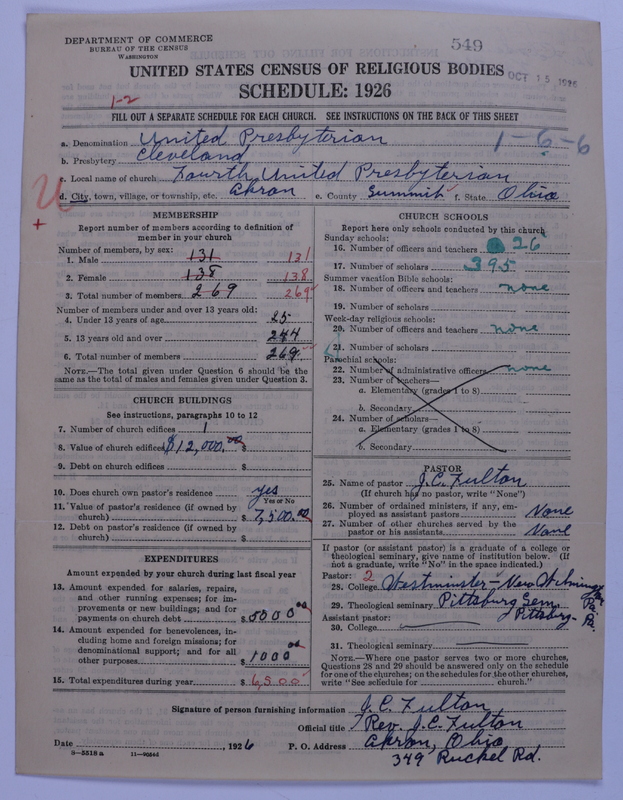 DEPARTMENT OF COMMERCE
BUREAU OF THE CENSUS
WASHINGTON
549
UNITED STATES CENSUS OF RELIGIOUS BODIES
OCT 15 1926
SCHEDULE: 1926
1-2
FILL OUT A SEPARATE SCHEDULE FOR EACH CHURCH. SEE INSTRUCTIONS ON THE BACK OF THIS SHEET
a. Denomination United Presbyterian
1-6-6
b. Presbytery Cleveland
c. Local name of church Fourth United Presbyterian
d. City, town, village, or township, etc. Akron e. County Summit f. State Ohio
MEMBERSHIP
Report number of members according to definition of
member in your church
Number of members, by sex:
1. Male 131 131
2. Female 138 138
3. Total number of members 269 269
Number of members under and over 13 years old:
4. Under 13 years of age 25
5. 13 years old and over 244
6. Total number of members 269
NOTE.—The total given under Question 6 should be the
same as the total of males and females given under Question 3.
CHURCH BUILDINGS
See instructions, paragraphs 10 to 12
7. Number of church edifices 1
8. Value of church edifices $12,000.00 $
9. Debt on church edifices $
10. Does church own pastor's residence yes
Yes or No
11. Value of pastor's residence (if owned by
church) $ 7,500.00
12. Debt on pastor's residence (if owned by
church) $
EXPENDITURES
Amount expended by your church during last fiscal year
13. Amount expended for salaries, repairs,
and other running expenses; for im-
provements or new buildings; and for
payments on church debt $ 5000 00
14. Amount expended for benevolences, in-
cluding home and foreign missions; for
denominational support; and for all
other purposes $ 1000 00
15. Total expenditures during year $
CHURCH SCHOOLS
Report here only schools conducted by this church
Sunday schools:
16. Number of officers and teachers 26
17. Number of scholars 395
Summer vacation Bible schools:
18. Number of officers and teachers none
19. Number of scholars
Week-day religious schools:
20. Number of officers and teachers none
21. Number of scholars
Parochial schools:
22. Number of administrative officers none
23. Number of teachers—
a. Elementary (grades 1 to 8)
b. Secondary
24. Number of scholars—
a. Elementary (grades 1 to 8)
b. Secondary
PASTOR
25. Name of pastor J.C. Fulton
(If church has no pastor, write "None")
26. Number of ordained ministers, if any, em-
ployed as assistant pastors None
27. Number of other churches served by the
pastor or his assistants None
If pastor (or assistant pastor) is a graduate of a college or
theological seminary, give name of institution below. (If
not a graduate, write "No" in the space indicated.)
Pastor: 2
28. College Westminster - New Wilmington Pa.
29. Theological seminary Pittsburg Sem. Pittsburg - Pa.
Assistant pastor:
30. College
31. Theological seminary
NOTE.—Where one pastor serves two or more churches,
Questions 28 and 29 should be answered only on the schedule
for one of the churches; on the schedules for the other churches,
write "See schedule for church."
Signature of person furnishing information J.C. Fulton
Official title Rev. J.C. Fulton
Date , 1926 P. O. Address Akron, Ohio
349 Ruckel Rd.
8-5518 a